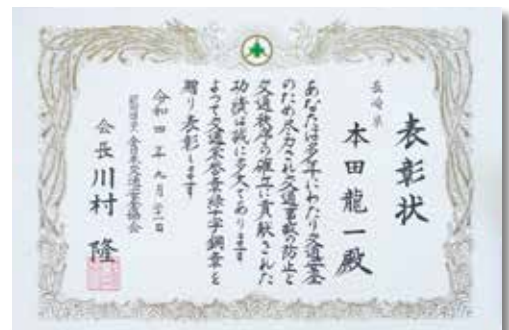 表彰状
長崎県
本田龍一殿
あなたは多年にわたり交通安全
のため尽力され交通事故の防止と
交通秩序の確立に貢献された
功績は誠に多大であります
よって交通栄誉章緑十字銅章を
贈り表彰します
令和四年九月三十日
全日本交通安全協会
会長川村隆